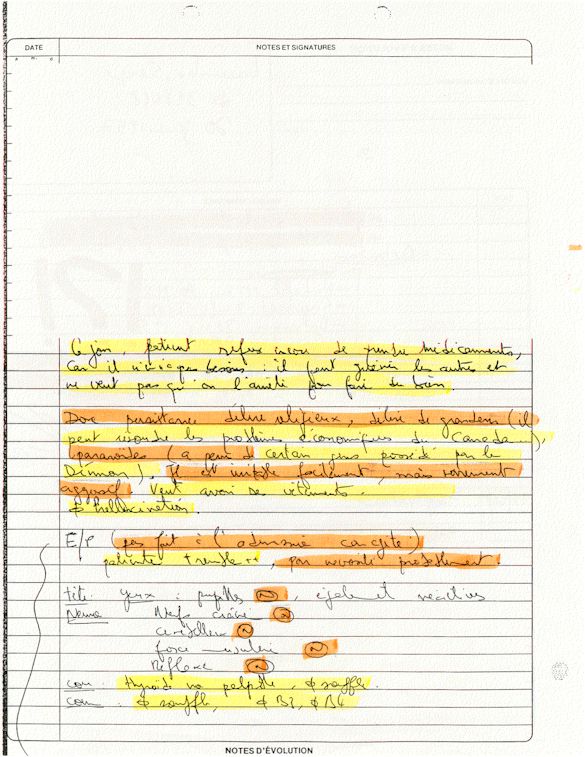 DATE
NOTES ET SIGNATURES
A M J
Ce jour, patient refuse encore de prendre médicaments,
Car il n'en a pas besoin : il peut guérir les autres et
ne veut pas qu'on l'arrête pour faire du bien
Donc persistance délire religieux, délire de grandeur (il
peut résoudre les problèmes économiques du Canada...),
paranoïdes (a peur de certain gens possédé par le
Démon). Il est irritable facilement, mais rarement
aggressif. Veut avoir ses vêtements.
∅ Hallucination.
E/P (pas fait à l'admission car agité)
patiente tremble ++, par nervosité probablement.
tête : yeux : pupilles N, égale et réactives
Neuro Nerfs crânien N
cervelet N
force musculaire N
Réflexe N
cou : thyroïde no palpable, ∅ souffle.
Coeur : ∅ souffle, ∅ B3, ∅ B4
NOTES D'ÉVOLUTION